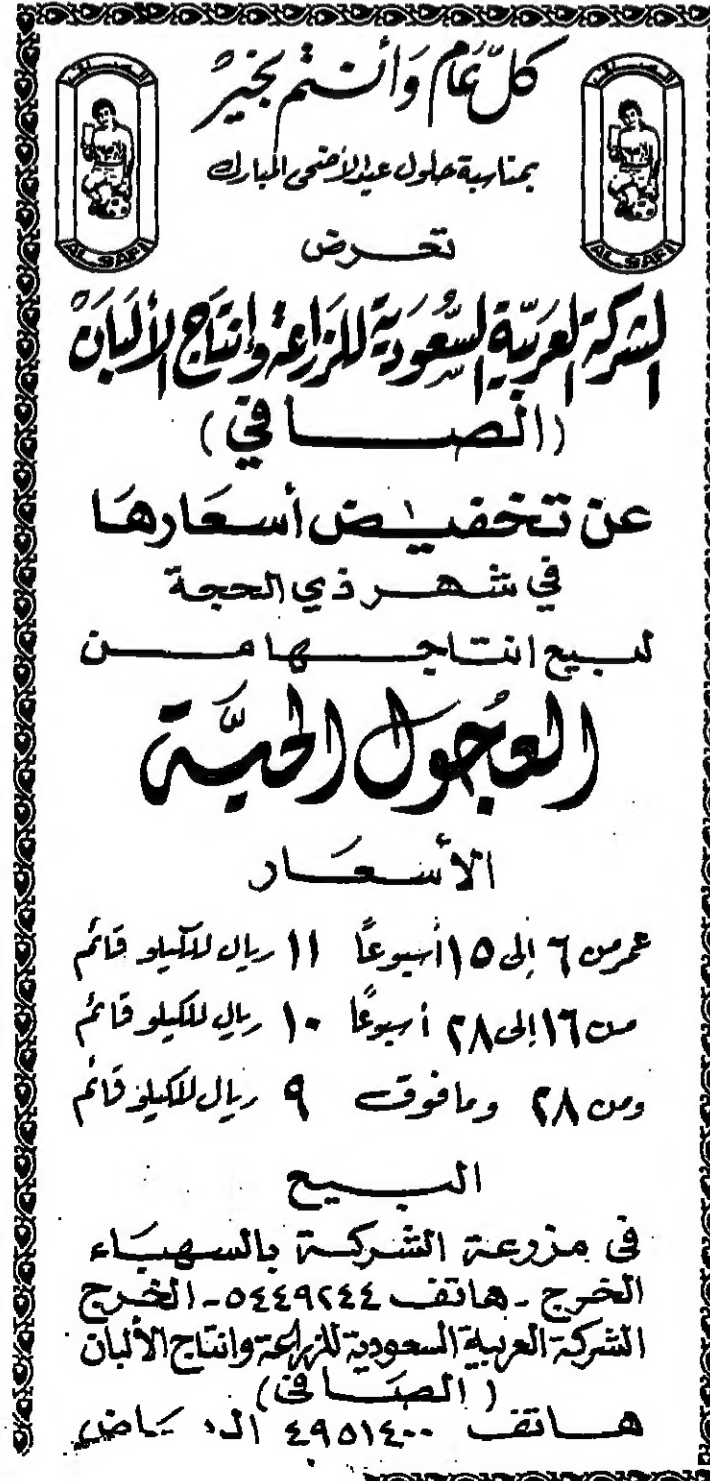 كل عام وأنتم بخير
بمناسبة حلول عيد الأضحى المبارك
تعرض
الشركة العربية السعودية للزراعة وإنتاج الألبان
(الصافي)
عن تخفيض أسعارها
في شهر ذي الحجة
لبيع انتاجها من
العجول الحية
الأسعار
عمر من ٦ إلى ١٥ أسبوعاً ١١ ريال للكيلو قائم
من ١٦ إلى ٢٨ أسبوعاً ١٠ ريال للكيلو قائم
ومن ٢٨ ومافوق ٩ ريال للكيلو قائم
البيع
في مزرعة الشركة بالسهباء
الخرج - هاتف ٥٤٤٩٢٤٤ - الخرج
الشركة العربية السعودية للزراعة وانتاج الألبان
(الصافي)
هاتف ٤٩٥١٤٠٠ الرياض
الصافي
AL SAFI
الصافي
AL SAFI